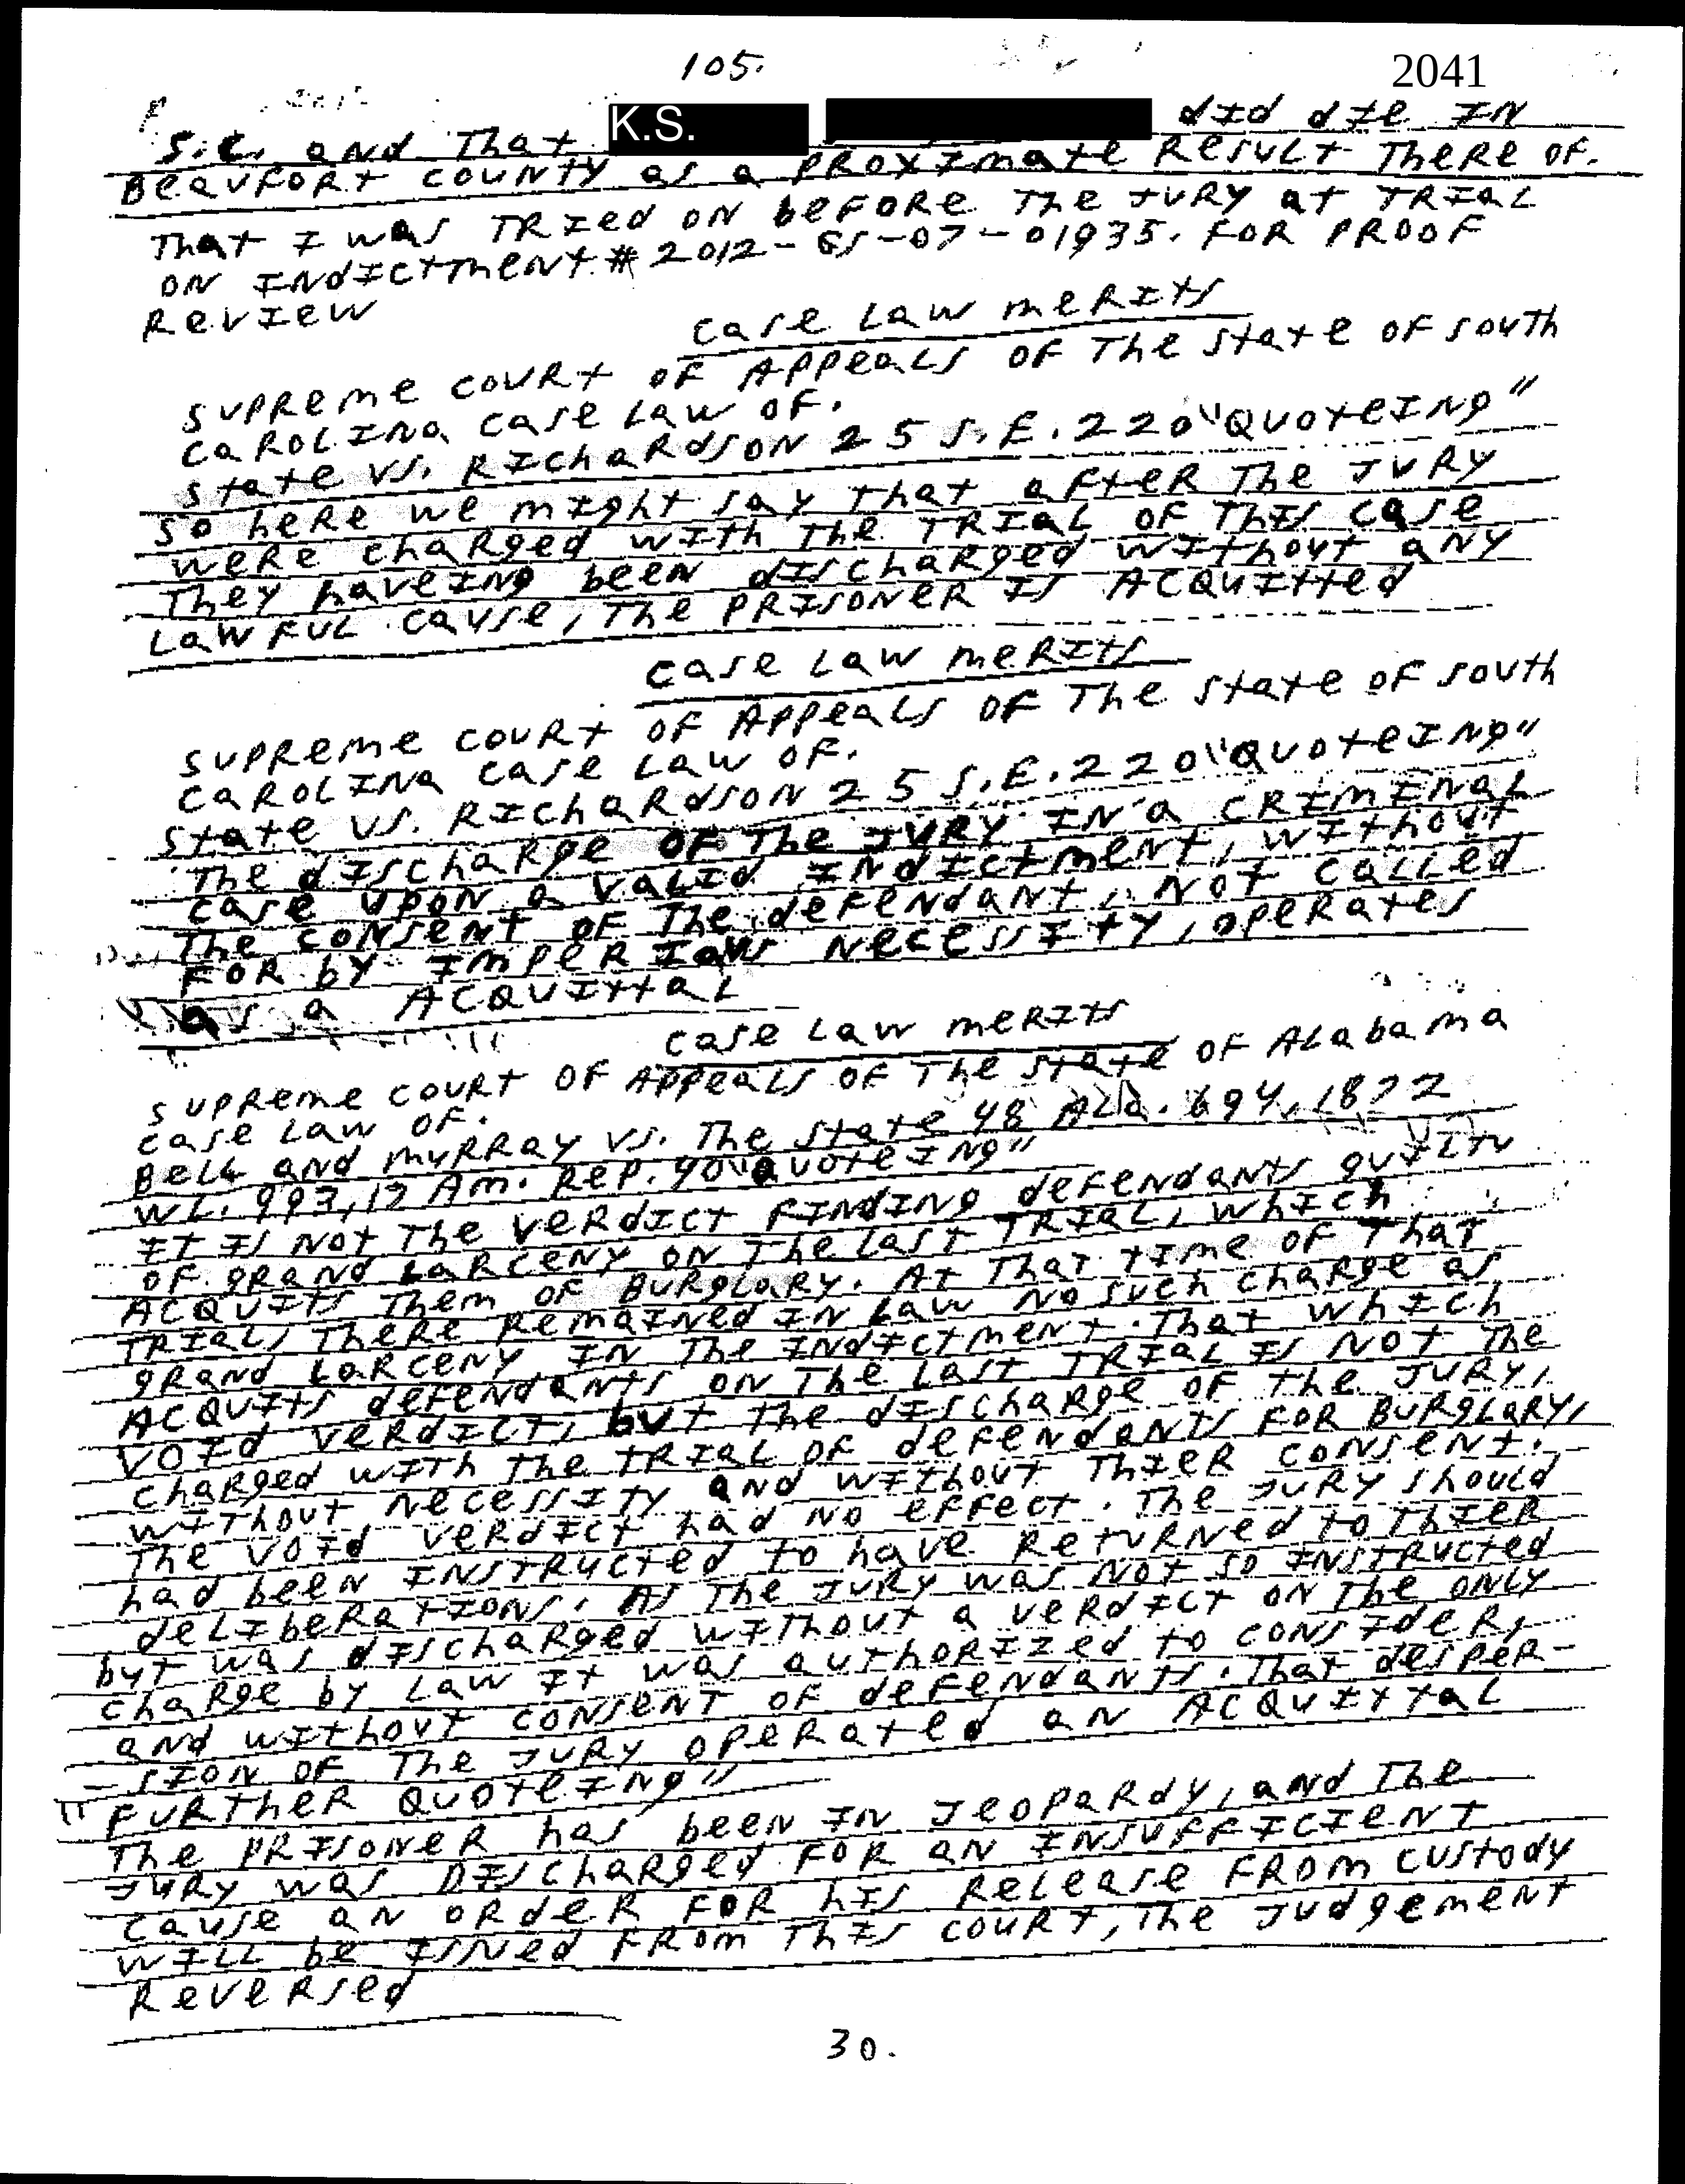 105.
2041
S.C. and That K.S. did die IN
Beaufort county as a proximate Result There of.
That I was TRIed on before The Jury at TRIaL
on Indictment # 2012-GS-07-01935. For Proof
Review
case Law merits
supreme court of Appeals of The state of south
caroLina case Law of.
state vs. Richardson 25 S.E. 220 "Quoteing"
so here we might say that after The Jury
were charged with the TRIaL of This case
They haveing been discharged without any
Lawful cause, The prisoner is ACQuitted
case Law merits
supreme court of Appeals of The state of south
caroLina case Law of.
state vs. Richardson 25 S.E. 220 "Quoteing"
The discharge of The Jury in a criminal
case upon a valid indictment, without
The consent of The defendant, not called
for by imperious necessity, operates
as a ACQuittaL
case Law merits
supreme court of Appeals of The state of ALabama
case Law of.
Bell and murray vs. The state 48 ALa. 694, 1872
WL. 993, 17 Am. Rep. 40 "Quoteing"
It is not The verdict finding defendants guilty
of grand Larceny on The Last TRIaL, which
ACQuits Them of Burglary. At That time of That
TRIaL, There remained in Law no such charge as
grand Larceny in The indictment. That which
ACQuits defendants on The Last TRIaL is not The
void verdict, but the discharge of the Jury,
charged with the TRIaL of defendants for Burglary,
without necessity and without Thier consent.
The void verdict had no effect. The Jury should
had been instructed to have returned to Thier
deliberations. As The Jury was not so instructed
but was discharged without a verdict on The only
charge by Law it was authorized to consider,
and without consent of defendants. That desper-
-sion of The Jury operated an ACQuittaL
"Further Quoteing"
The prisoner has been in Jeopardy, and The
Jury was Discharged for an insufficient
cause an order for his release from custody
will be issued from This court, The Judgement
Reversed
30.